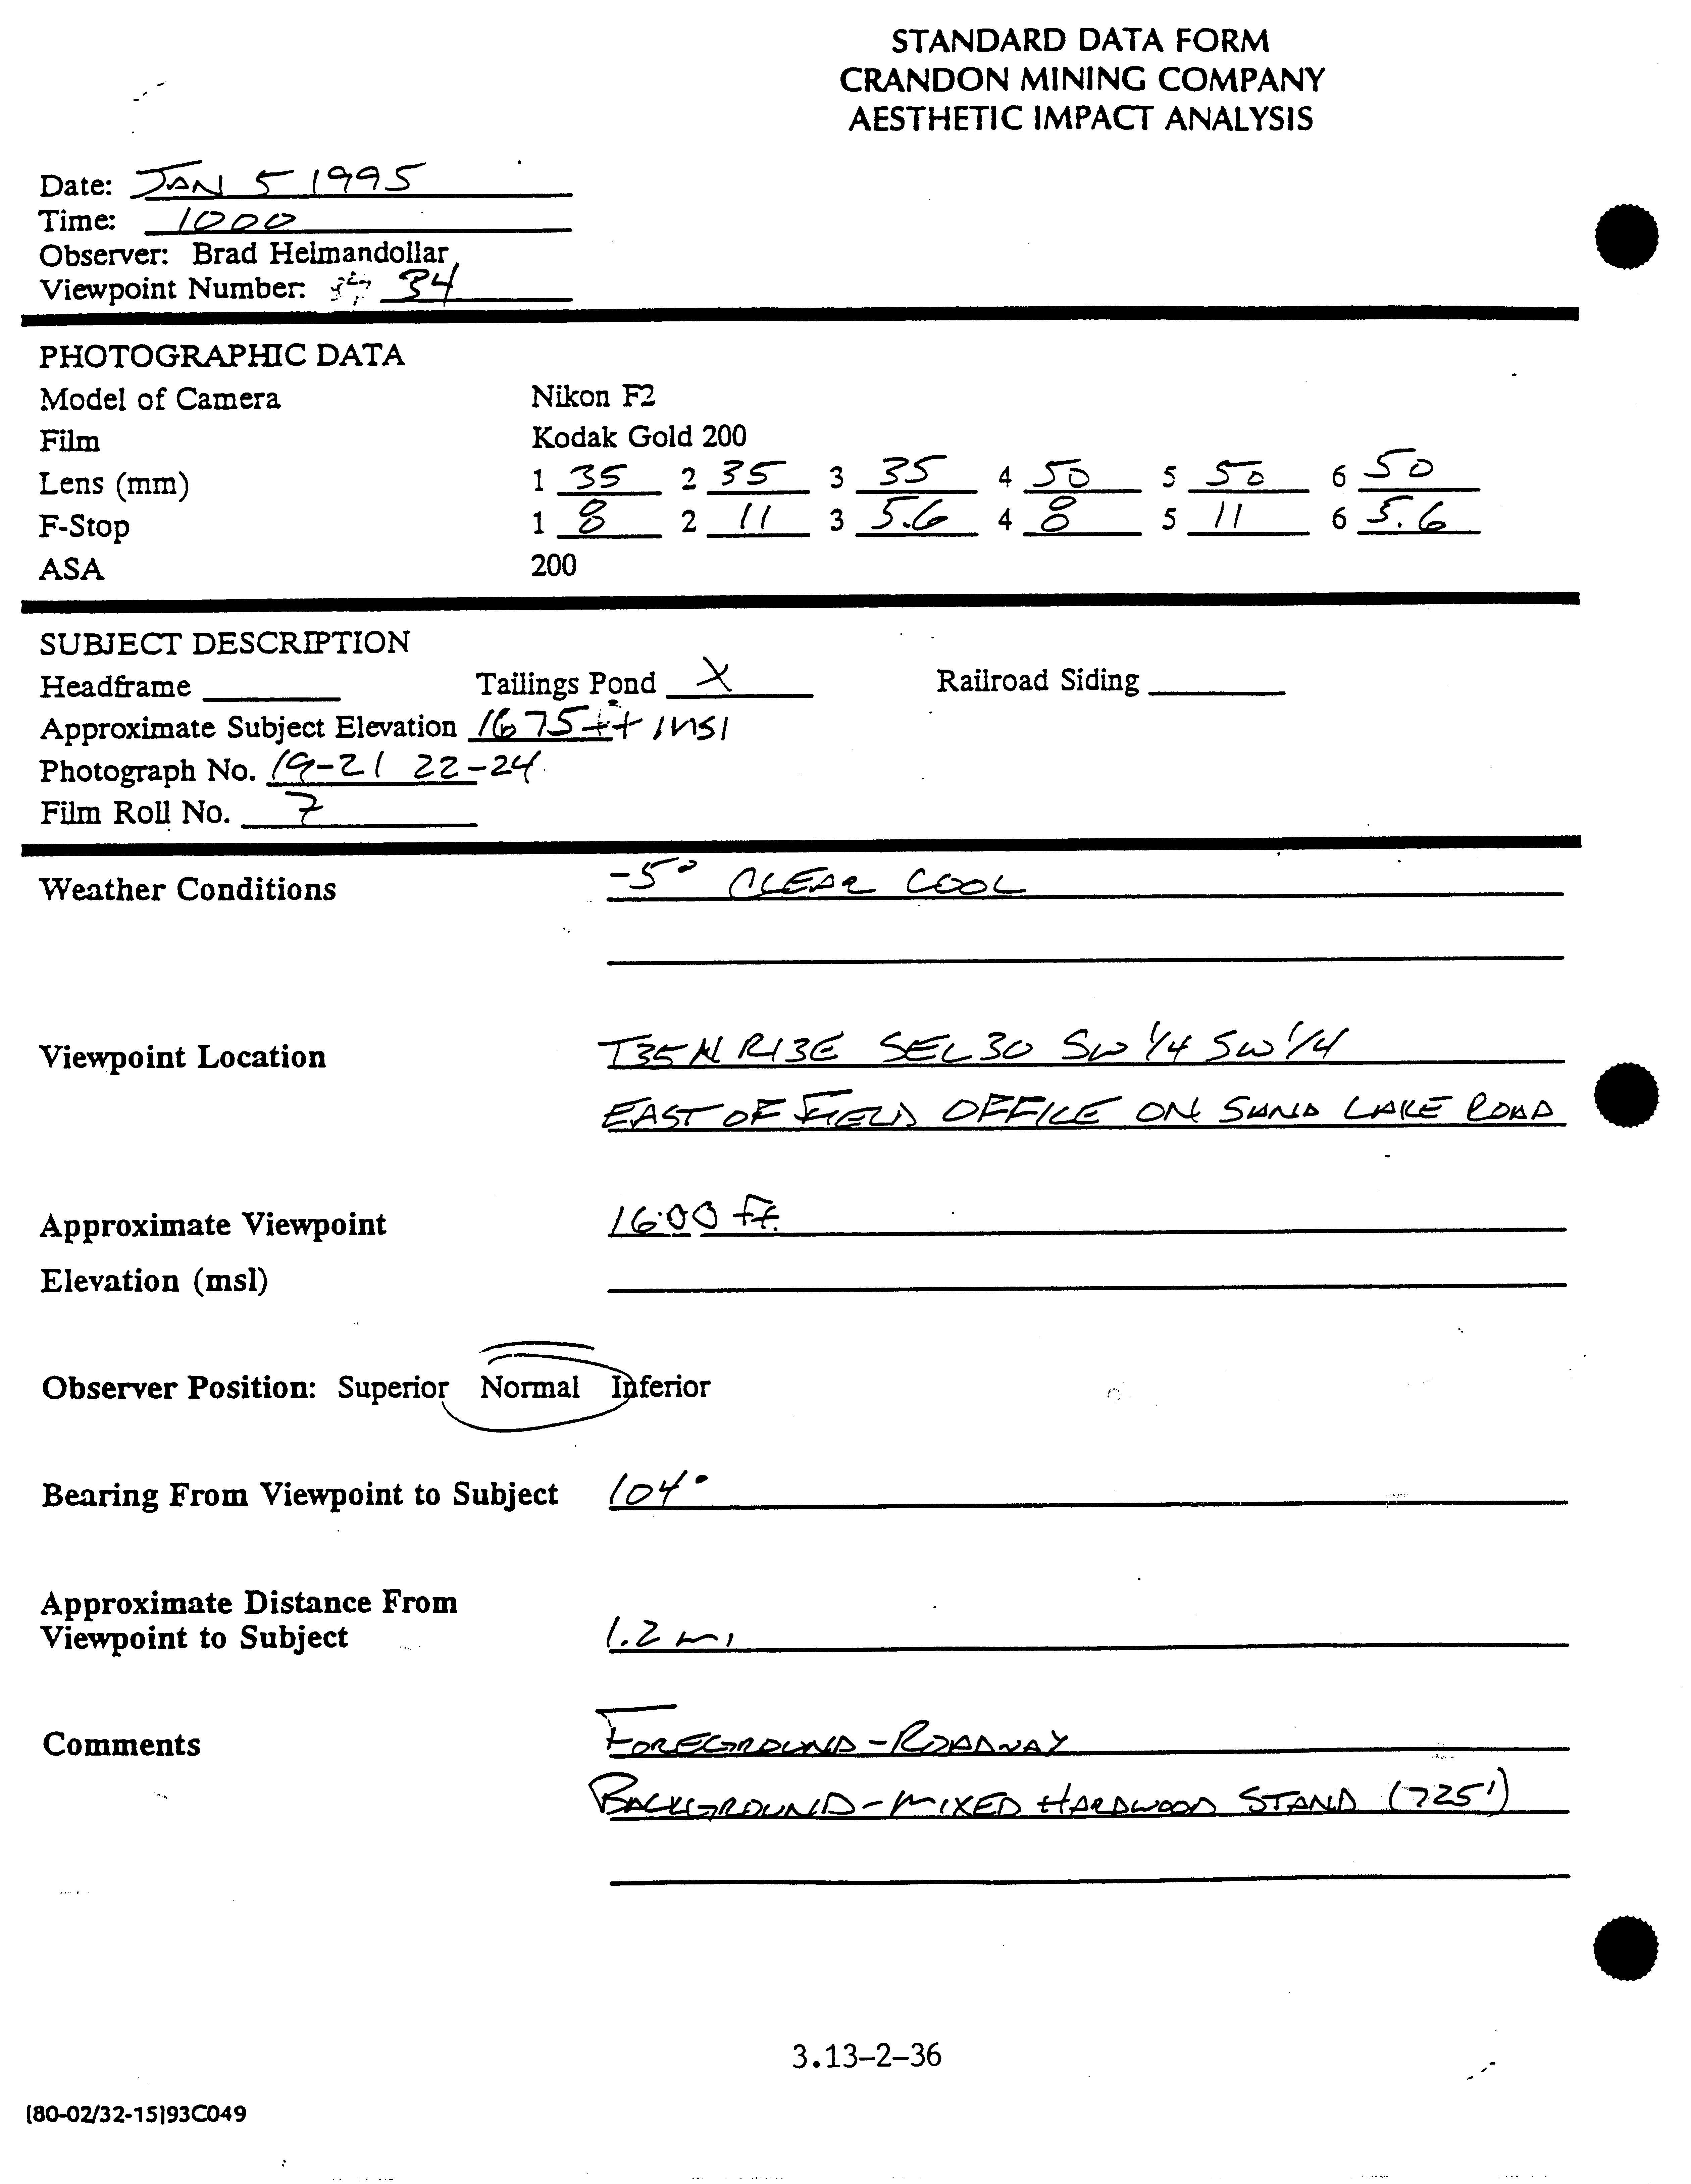 STANDARD DATA FORM
CRANDON MINING COMPANY
AESTHETIC IMPACT ANALYSIS
Date: JAN 5 1995
Time: 1000
Observer: Brad Helmandollar
Viewpoint Number: 34
PHOTOGRAPHIC DATA
Model of Camera Nikon F2
Film Kodak Gold 200
Lens (mm) 1 35 2 35 3 35 4 50 5 50 6 50
F-Stop 1 8 2 11 3 5.6 4 8 5 11 6 5.6
ASA 200
SUBJECT DESCRIPTION
Headframe Tailings Pond X Railroad Siding
Approximate Subject Elevation 1675 ft msl
Photograph No. 19-21 22-24
Film Roll No. 7
Weather Conditions -5° CLEAR COOL
Viewpoint Location T35N R13E SEC 30 SW 1/4 SW 1/4
EAST OF FIELD OFFICE ON SAND LAKE ROAD
Approximate Viewpoint 1600 ft.
Elevation (msl)
Observer Position: Superior Normal Inferior
Bearing From Viewpoint to Subject 104°
Approximate Distance From
Viewpoint to Subject 1.2 mi
Comments FOREGROUND - ROADWAY
BACKGROUND - MIXED HARDWOOD STAND (725')
3.13-2-36
[80-02/32-15]93C049